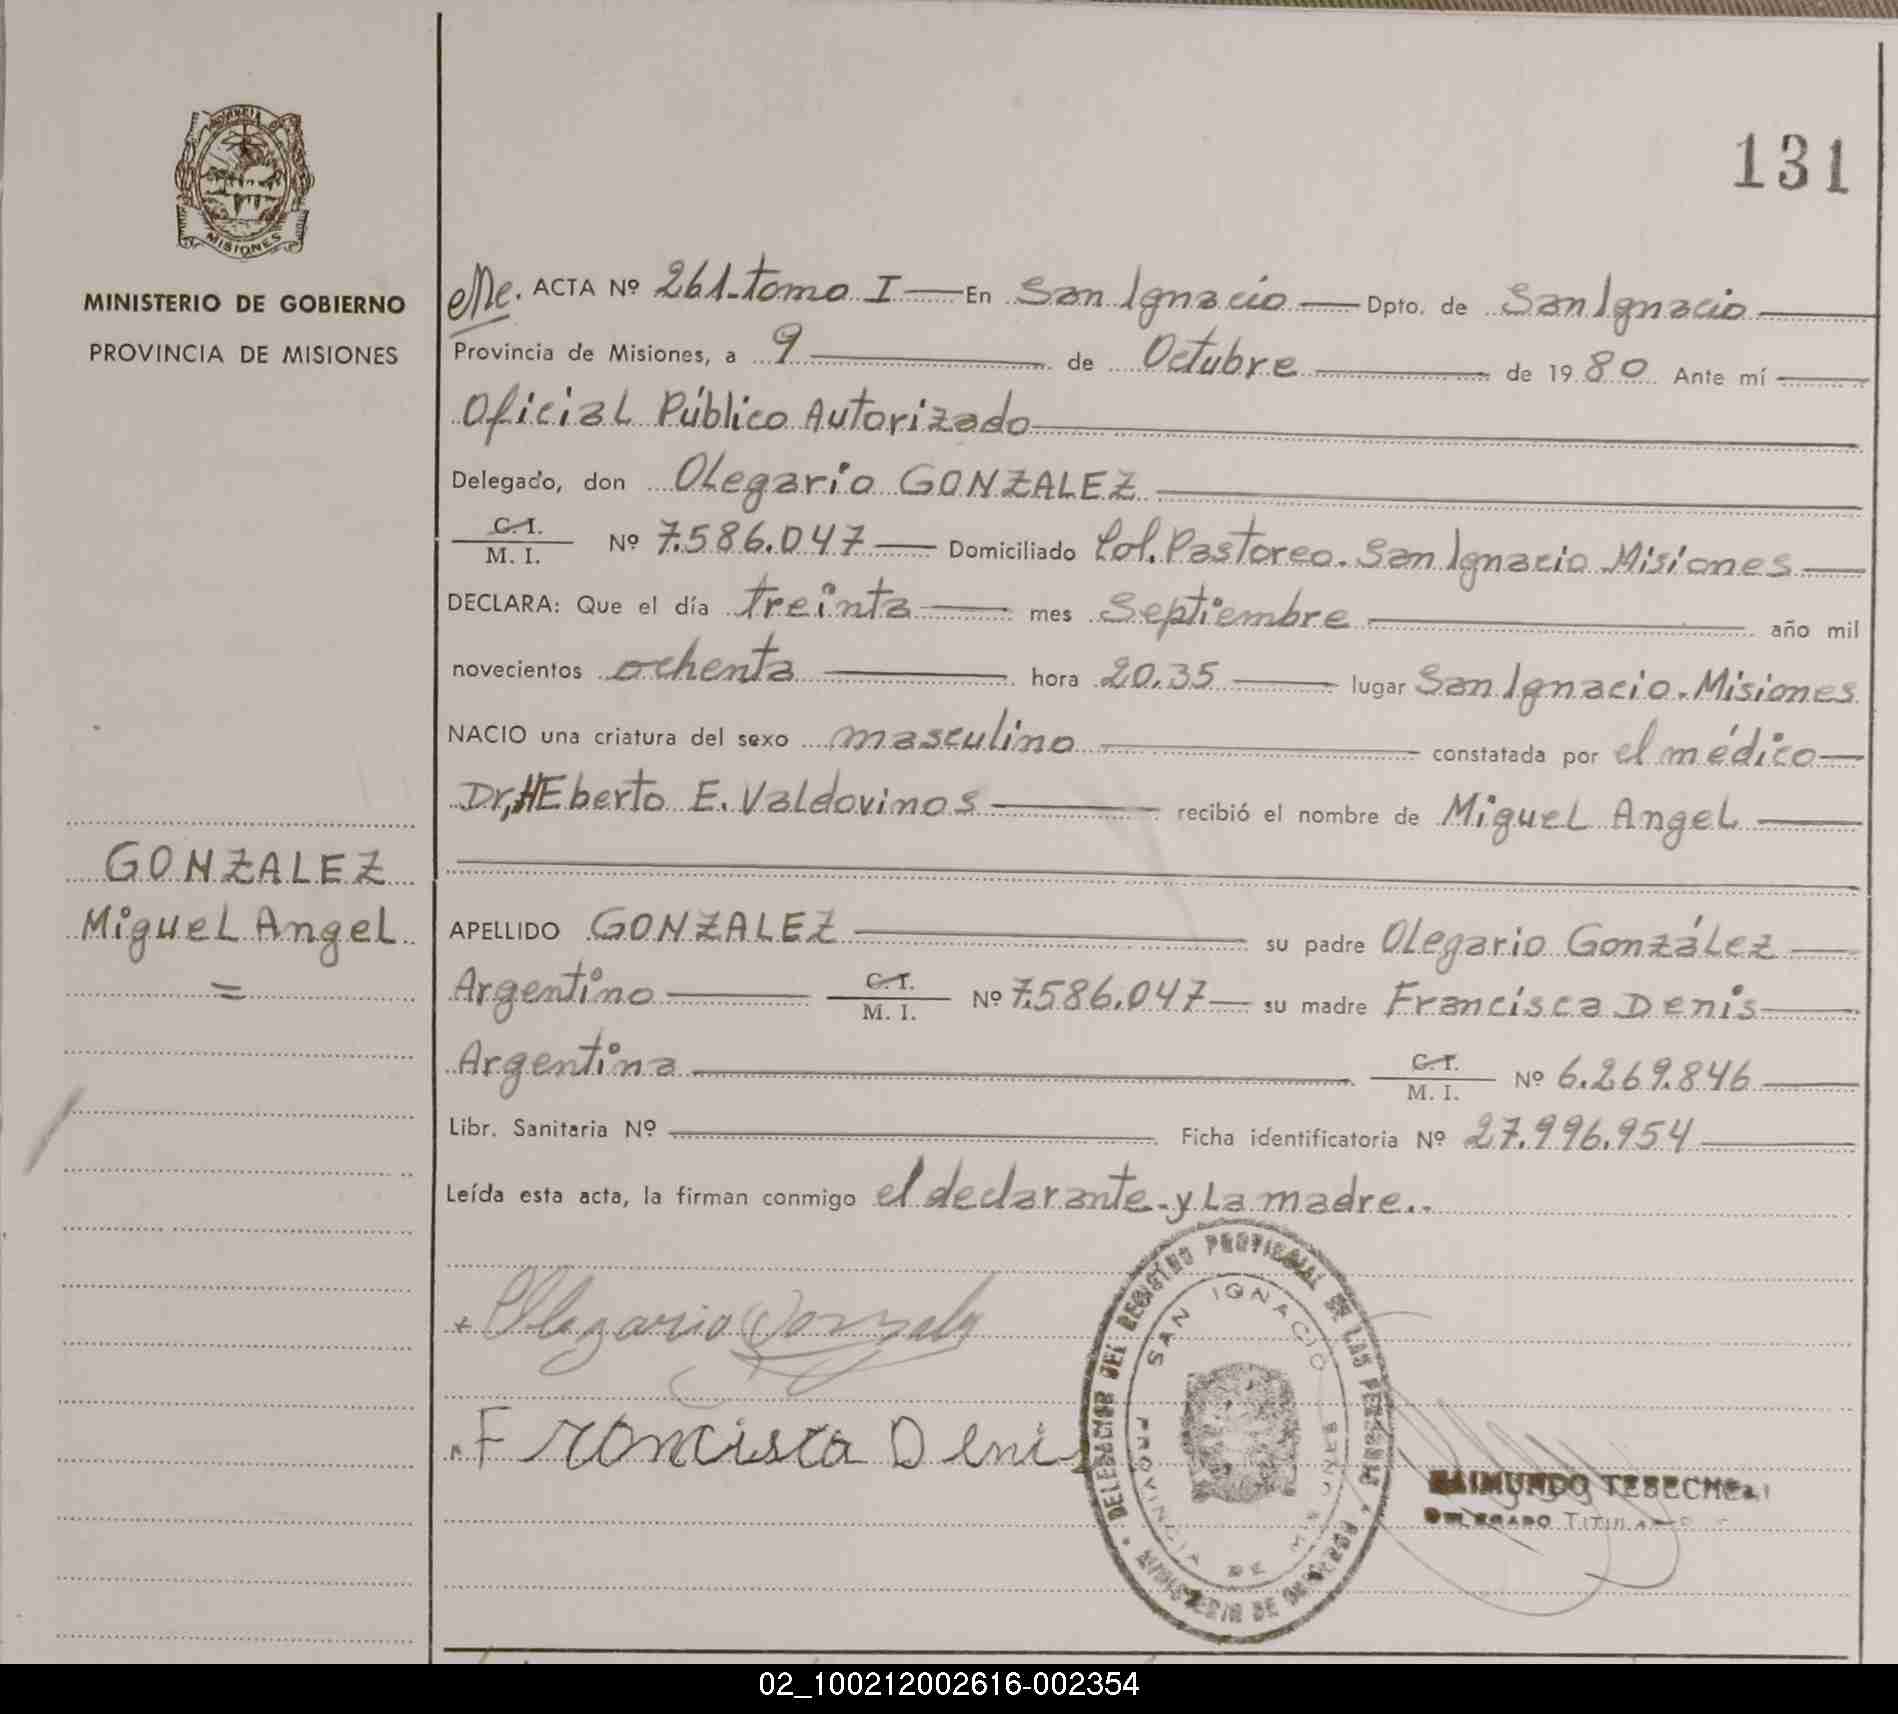 131
PROVINCIA DE
MISIONES
MINISTERIO DE GOBIERNO
PROVINCIA DE MISIONES
GONZALEZ
Miguel Angel
=
ACTA Nº 261-tomo I En San Ignacio Dpto. de San Ignacio
Provincia de Misiones, a 9 de Octubre de 1980 Ante mí
Oficial Público Autorizado
Delegado, don Olegario GONZALEZ
C. I.
M. I. Nº 7.586.047 Domiciliado Col. Pastoreo. San Ignacio Misiones
DECLARA: Que el día treinta mes Septiembre año mil
novecientos ochenta hora 20.35 lugar San Ignacio. Misiones
NACIO una criatura del sexo masculino constatada por el médico
Dr, HEberto E. Valdovinos recibió el nombre de Miguel Angel
APELLIDO GONZALEZ su padre Olegario González
Argentino C. I. M. I. Nº 7.586.047 su madre Francisca Denis
Argentina C. I. M. I. Nº 6.269.846
Libr. Sanitaria Nº Ficha identificatoria Nº 27.996.954
Leída esta acta, la firman conmigo el declarante y La madre..
Olegario Gonzalez
Francisca Denis
DELEGACION DEL REGISTRO PROVINCIAL DE LAS PERSONAS
MINISTERIO DE GOBIERNO
SAN IGNACIO
PROVINCIA DE MISIONES
RAIMUNDO
DELEGADO TITULAR
02_100212002616-002354